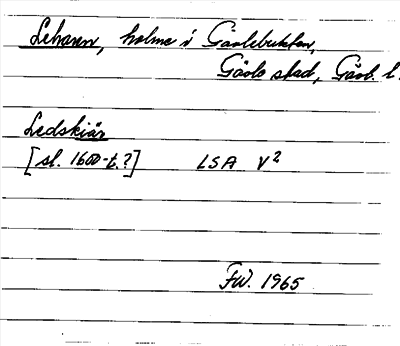 Leharen, holme i Gävlebukten,
Gävle stad, Gävl. l.
Ledskiär
[sl. 1600-t.?] LSA V²
FW. 1965